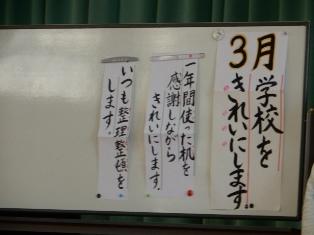 3月学校を
きれいにします。
一年間使った机を
感謝しながら
きれいにします。
いつも整理整頓を
します。